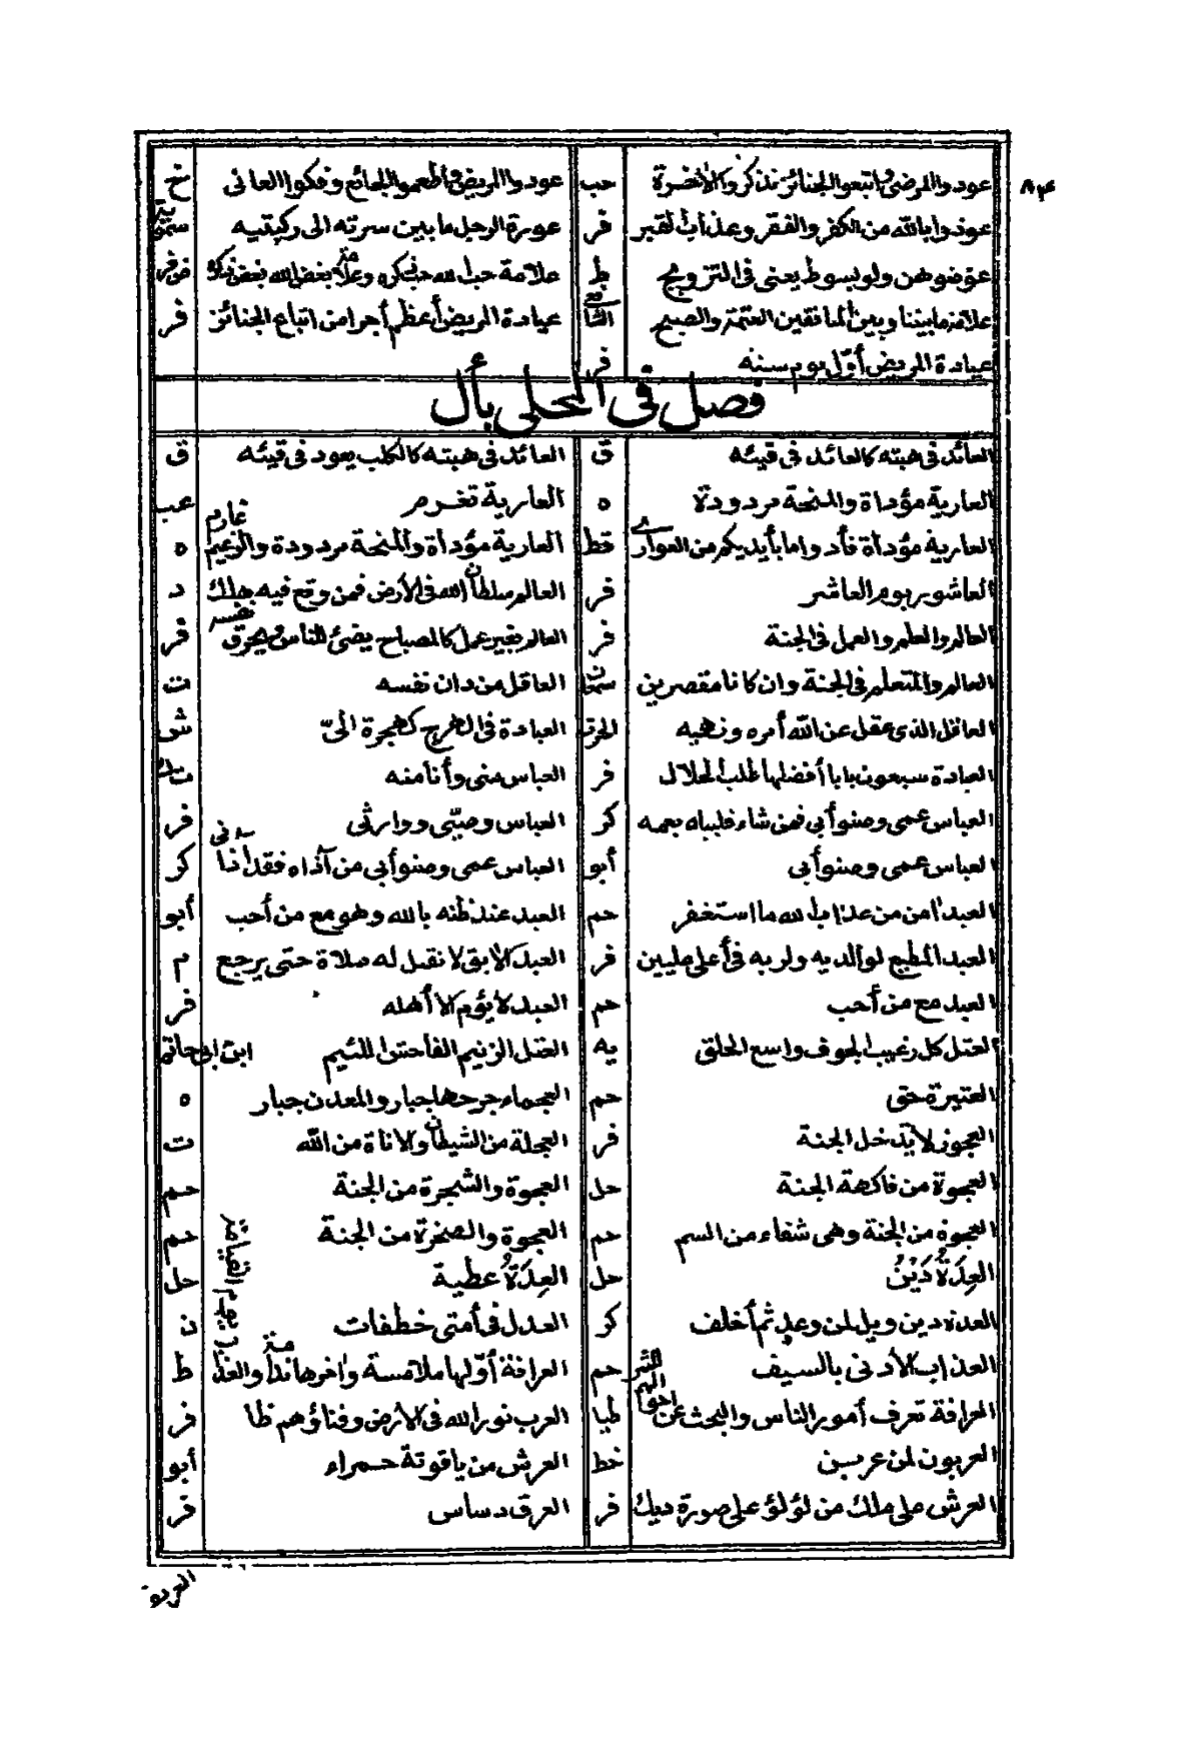 ٨٣
عودوا المرضى واتبعوا الجنائز تذكركم الآخرة حب عودوا المريض وأطعموا الجائع وفكوا العانى خ
عوذوا بالله من الكفر والفقر وعذاب القبر فر عورة الرجل ما بين سرته الى ركبتيه سمويه
عوضوهن ولو بسوط يعنى فى التزويج ط علامة حب الله حب ذكره وعلامة بغض الله بغض ذكره
علامة ما بيننا وبين المنافقين العتمة والصبح الشافعى عيادة المريض أعظم أجرا من اتباع الجنائز فر
عيادة المريض أول يوم سنه فر
فصل فى المحلى بأل
العائد فى هبته كالعائد فى قيئه ق العائد فى هبته كالكلب يعود فى قيئه ق
العارية مؤداة والمنحة مردودة ه العارية تغرم عب
العارية مؤداة فأدوا ما بأيديكم من العوارى قط العارية مؤداة والمنحة مردودة والزعيم غارم ه
العاشور يوم العاشر فر العالم سلطان الله فى الأرض فمن وقع فيه هلك د
العالم والعلم والعمل فى الجنة فر العالم بغير عمل كالمصباح يضئ للناس ويحرق نفسه فر
العالم والمتعلم فى الجنة وان كانا مقصرين العاقل من دان نفسه ت
العاقل الذى عقل عن الله أمره ونهيه العبادة فى الهرج كهجرة الىّ ش
العبادة سبعون بابا أفضلها طلب الحلال فر العباس منى وأنا منه ت ك
العباس عمى وصنو أبى فمن شاء فليباه بعمه كر العباس وصيّى ووارثى فر
العباس عمى وصنو أبى أبو العباس عمى وصنو أبى من آذاه فقد آذانى كر
العبد آمن من عذاب الله ما استغفر حم العبد عند ظنه بالله وهو مع من أحب أبو
العبد المطيع لوالديه ولربه فى أعلى عليين فر العبد الآبق لا تقبل له صلاة حتى يرجع م
العبد مع من أحب حم العبد لا يؤم الا أهله فر
العتل كل رغيب الجوف واسع الحلق يه العتل الزنيم الفاحش اللئيم ابن ابى حاتم
العتيرة حق حم العجماء جرحها جبار والمعدن جبار ه
العجوز لا يدخل الجنة فر العجلة من الشيطان والاناة من الله ت
العجوة من فاكهة الجنة حل العجوة والشجرة من الجنة حم
العجوة من الجنة وهى شفاء من السم حم العجوة والصخرة من الجنة حم
العِدَةُ دَيْنٌ حل العِدَةُ عطية حل
العدة دين ويل لمن وعد ثم أخلف كر العدل فى أمتى خطفات ن
العذاب الأدنى بالسيف حم العرافة أوّلها ملامة وآخرها ندامة والعذاب يوم القيامة ط
العرافة تعرف أمور الناس والبحث عن طيا العرب نور الله فى الارض وفناؤهم فر
العربون لمن عربن خط العرش من ياقوتة حمراء أبو
العرش على ملك من لؤلؤ على صورة ديك فر العرق دساس فر